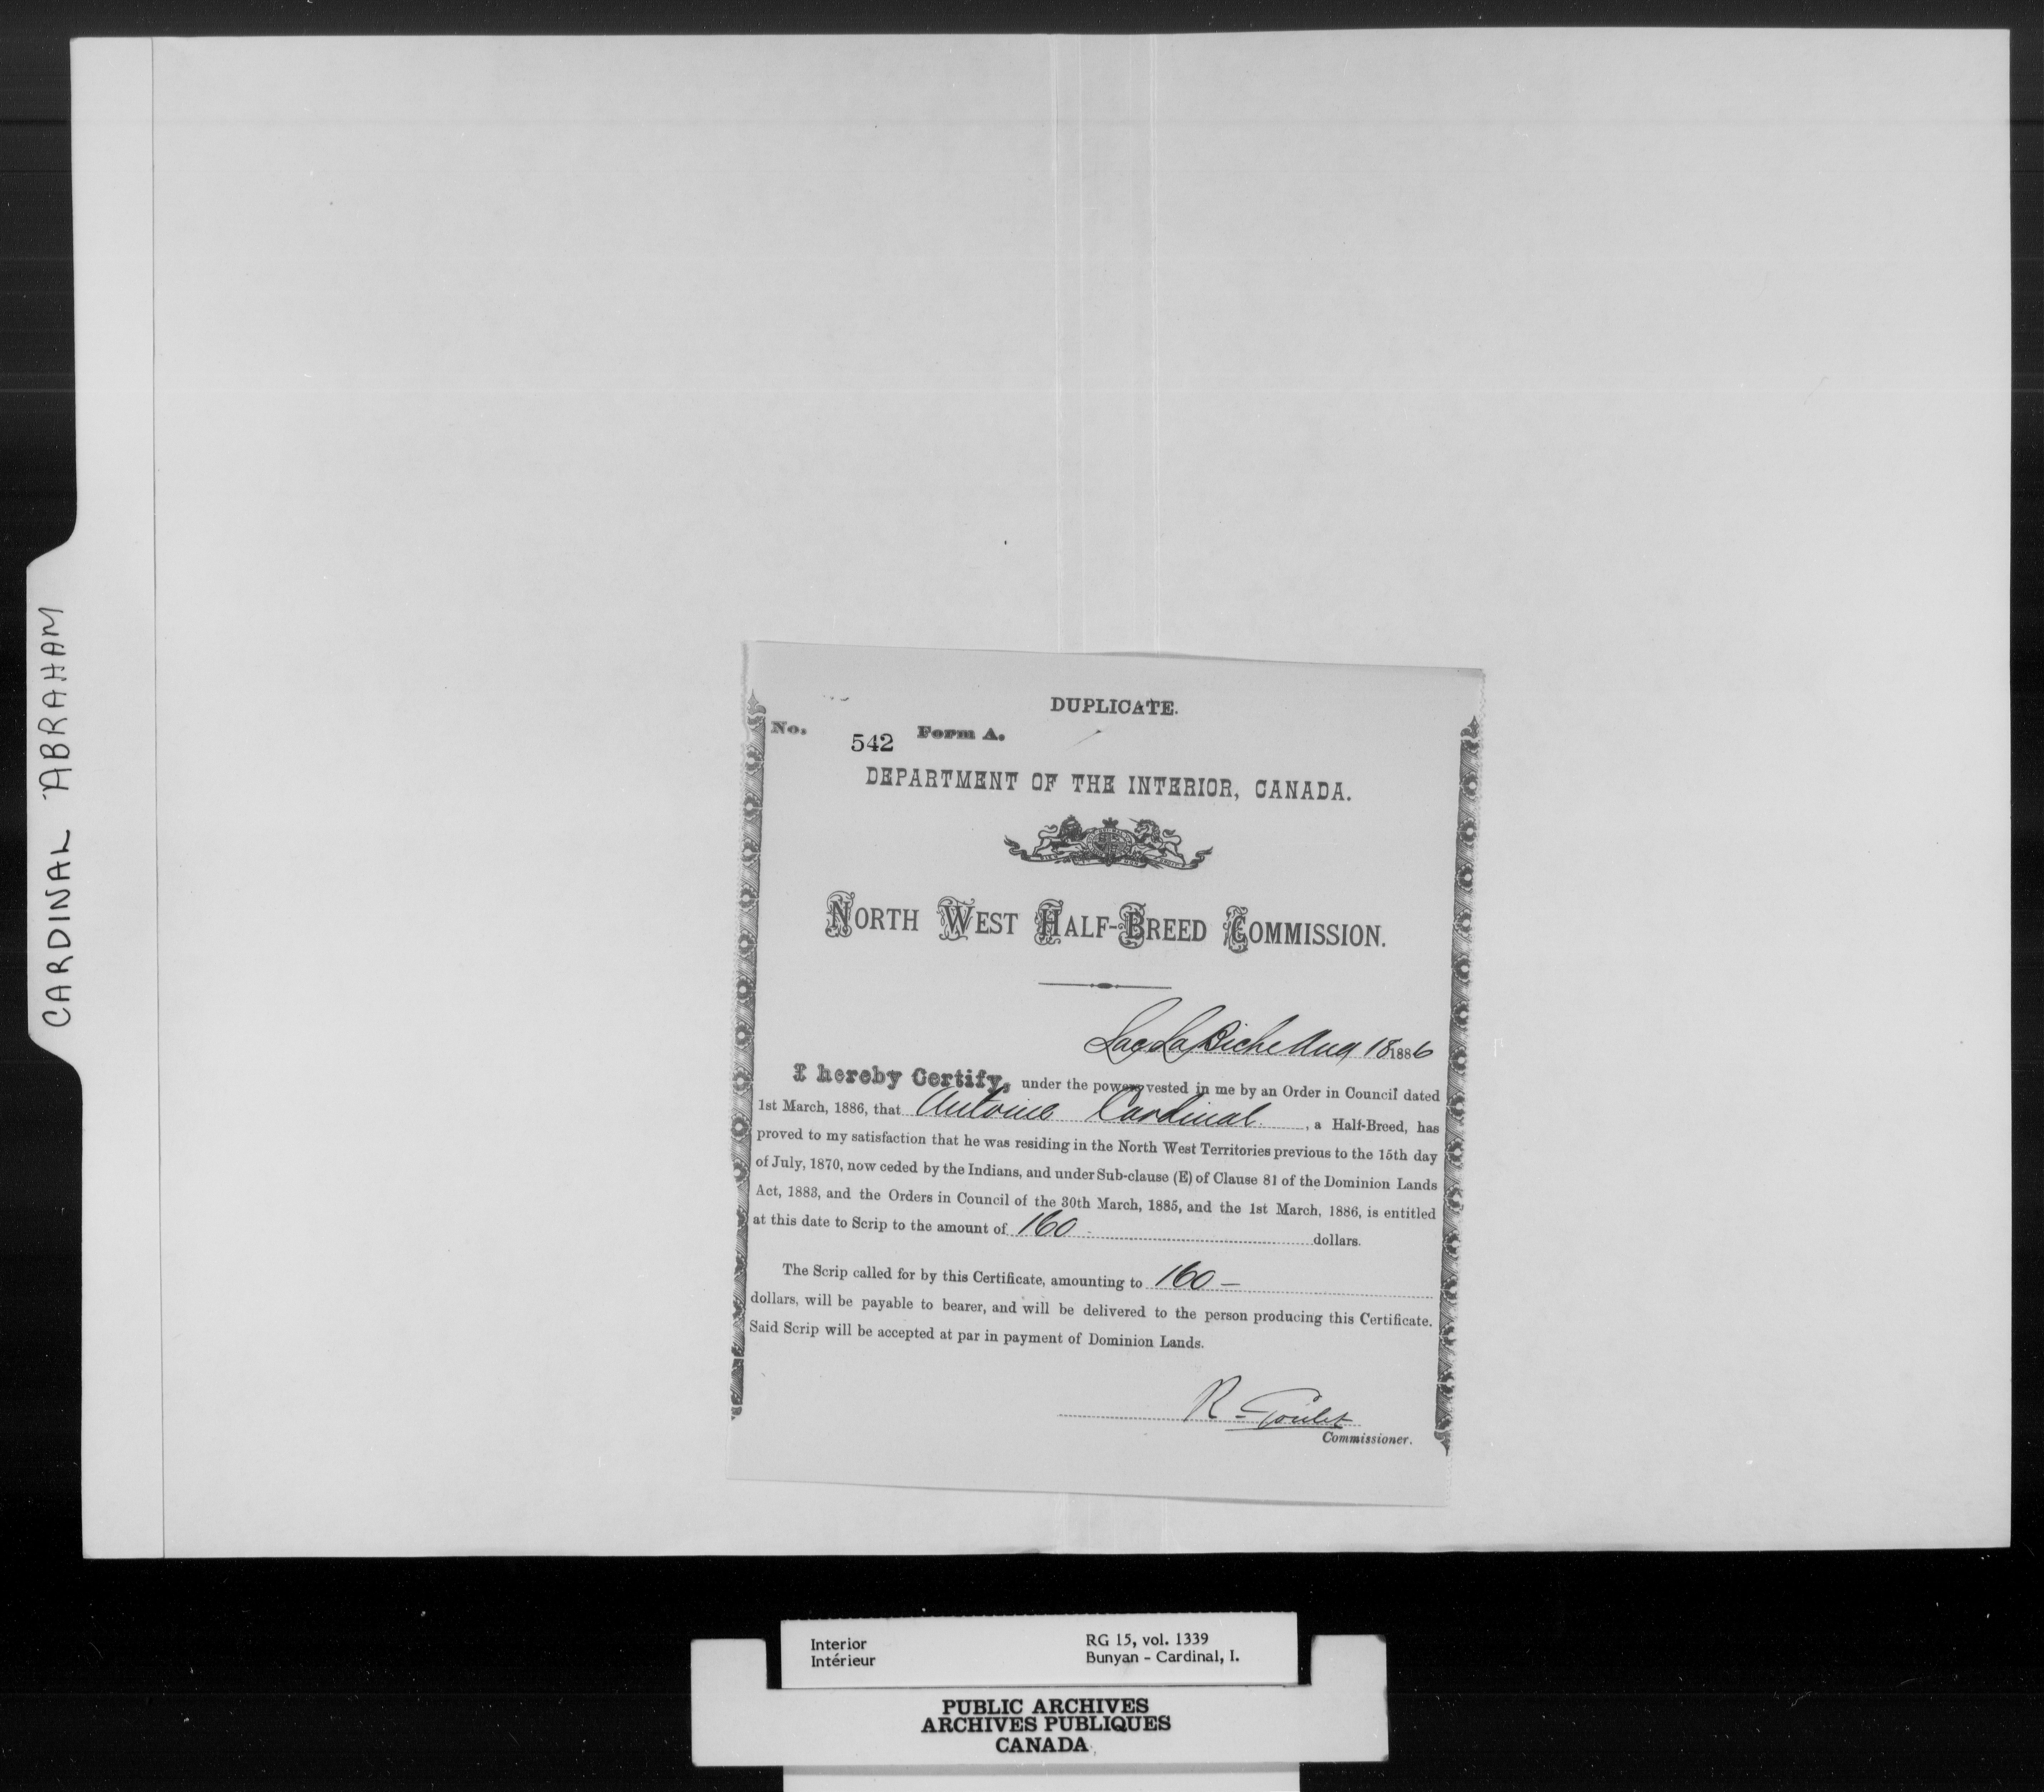 CARDINAL ABRAHAM
DUPLICATE.
No. 542 Form A.
DEPARTMENT OF THE INTERIOR, CANADA.
NORTH WEST HALF-BREED COMMISSION.
Lac La Biche Aug 18 1886
I hereby Certify, under the powers vested in me by an Order in Council dated
1st March, 1886, that Antoine Cardinal, a Half-Breed, has
proved to my satisfaction that he was residing in the North West Territories previous to the 15th day
of July, 1870, now ceded by the Indians, and under Sub-clause (E) of Clause 81 of the Dominion Lands
Act, 1883, and the Orders in Council of the 30th March, 1885, and the 1st March, 1886, is entitled
at this date to Scrip to the amount of 160 dollars.
The Scrip called for by this Certificate, amounting to 160 —
dollars, will be payable to bearer, and will be delivered to the person producing this Certificate.
Said Scrip will be accepted at par in payment of Dominion Lands.
R. Goulet
Commissioner.
Interior RG 15, vol. 1339
Intérieur Bunyan - Cardinal, I.
PUBLIC ARCHIVES
ARCHIVES PUBLIQUES
CANADA